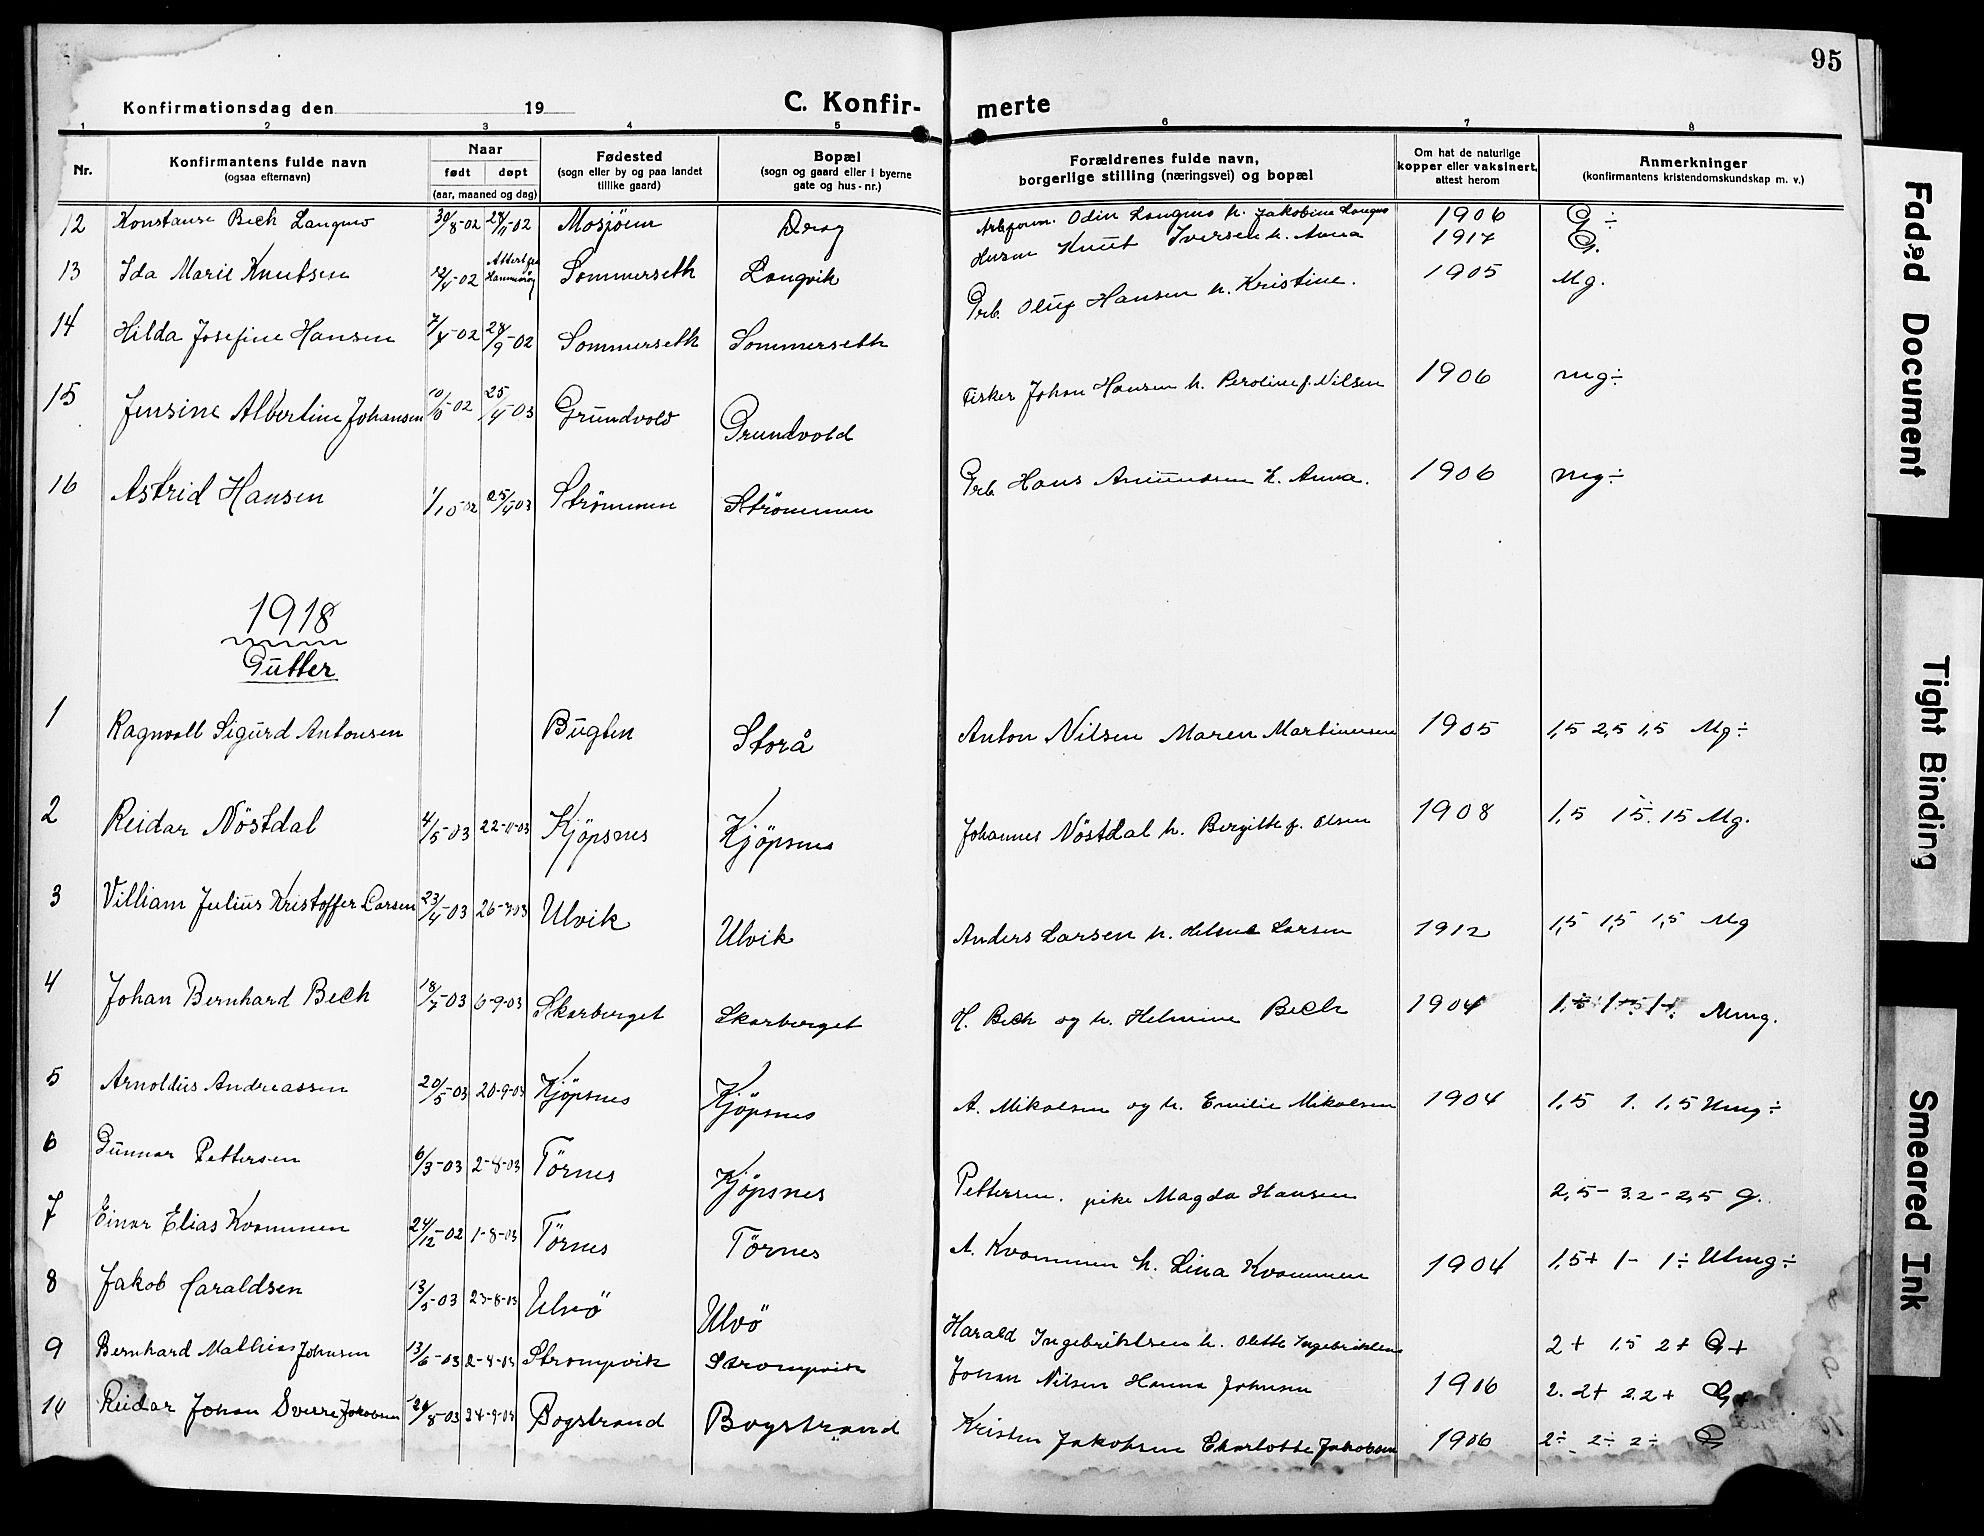 95
Konfirmationsdag den 19 C. Konfir- merte
1 2 3 4 5 6 7 8
Nr. Konfirmantens fulde navn (ogsaa efternavn) Naar født døpt (aar, maaned og dag) Fødested (sogn eller by og paa landet tillike gaard) Bopæl (sogn og gaard eller i byerne gate og hus-nr.) Forældrenes fulde navn, borgerlige stilling (næringsvei) og bopæl Om hat de naturlige kopper eller vaksinert, attest herom Anmerkninger (konfirmantens kristendomskundskap m. v.)
12 Konstanse Bech Langmo 30/8-02 Mosjøen Drag Odin Langmo h. Jakobine Langmo 1906 G ÷
13 Ida Marie Knutsen Sommerseth Langvik Knut Iversen h. Anna 1917 G.
14 Hilda Josefine Hansen 7/4-02 28/9-02 Sommerseth Sommerseth Grb. Oluf Hansen h. Kristine. 1905 Mg.
15 Jensine Albertine Johansen 25/4-03 Grundvold Grundvold Fisker Johan Hansen h. Peroline f. Nilsen 1906 mg÷
16 Astrid Hansen 1/10-02 25/4-03 Strømmen Strömmen Grb. Hans Amundsen h. Anna. 1906 mg÷
1918
Gutter
1 Ragnvall Sigurd Antonsen Bugten Storå Anton Nilsen Maren Martinusen 1905 1,5 2,5 1,5 Mg÷
2 Reidar Nöstdal 4/5-03 22-11-03 Kjöpsnes Kjöpsnes Johannes Nöstdal h. Bergitte f. Olsen 1908 1,5 15. 15 Mg.
3 Villiam Julius Kristoffer Larsen 23/4-03 Ulvik Ulvik Anders Larsen h. Helene Larsen 1912 1,5 1,5 1,5 Mg
4 Johan Bernhard Bech 18/7-03 6-9-03 Skarberget Skarberget H. Bech og h. Helmine Bech 1904 Mmg.
5 Arnoldus Andreassen 20/5-03 20-9-03 Kjöpsnes Kjöpsnes A. Mikalsen og h. Emilie Mikalsen 1904 1,5 1. 1,5 Umg÷
6 Gunnar Pettersen 6/3-03 2-8-03 Törnes Kjöpsnes Pettersen. pike Magda Hansen 2,5- 3.2- 2,5 G.
7 Einar Elias Kvammen 24/12-02 1-8-03 Törnes Törnes A. Kvammen h. Lina Kvammen 1904 1,5+ 1- 1÷ Umg÷
8 Jakob Haraldsen 13/5-03 23-8-03 Ulvö Ulvö Harald Ingebriktsen h. Olette Ingebriktsen 2+ 1.5 2+ G+
9 Bernhard Mathias Johnsen 13/6-03 Strompvik Strompvik Johan Nilsen Hanna Johnsen 1906 2. 2+ 2.2+ G+
10 Reidar Johan Sverre Jakobsen 24-9-03 Bogstrand Bogstrand Kristen Jakobsen Charlotte Jakobsen 1906 2÷ 2÷ 2÷ G
Faded Document
Tight Binding
Smeared Ink